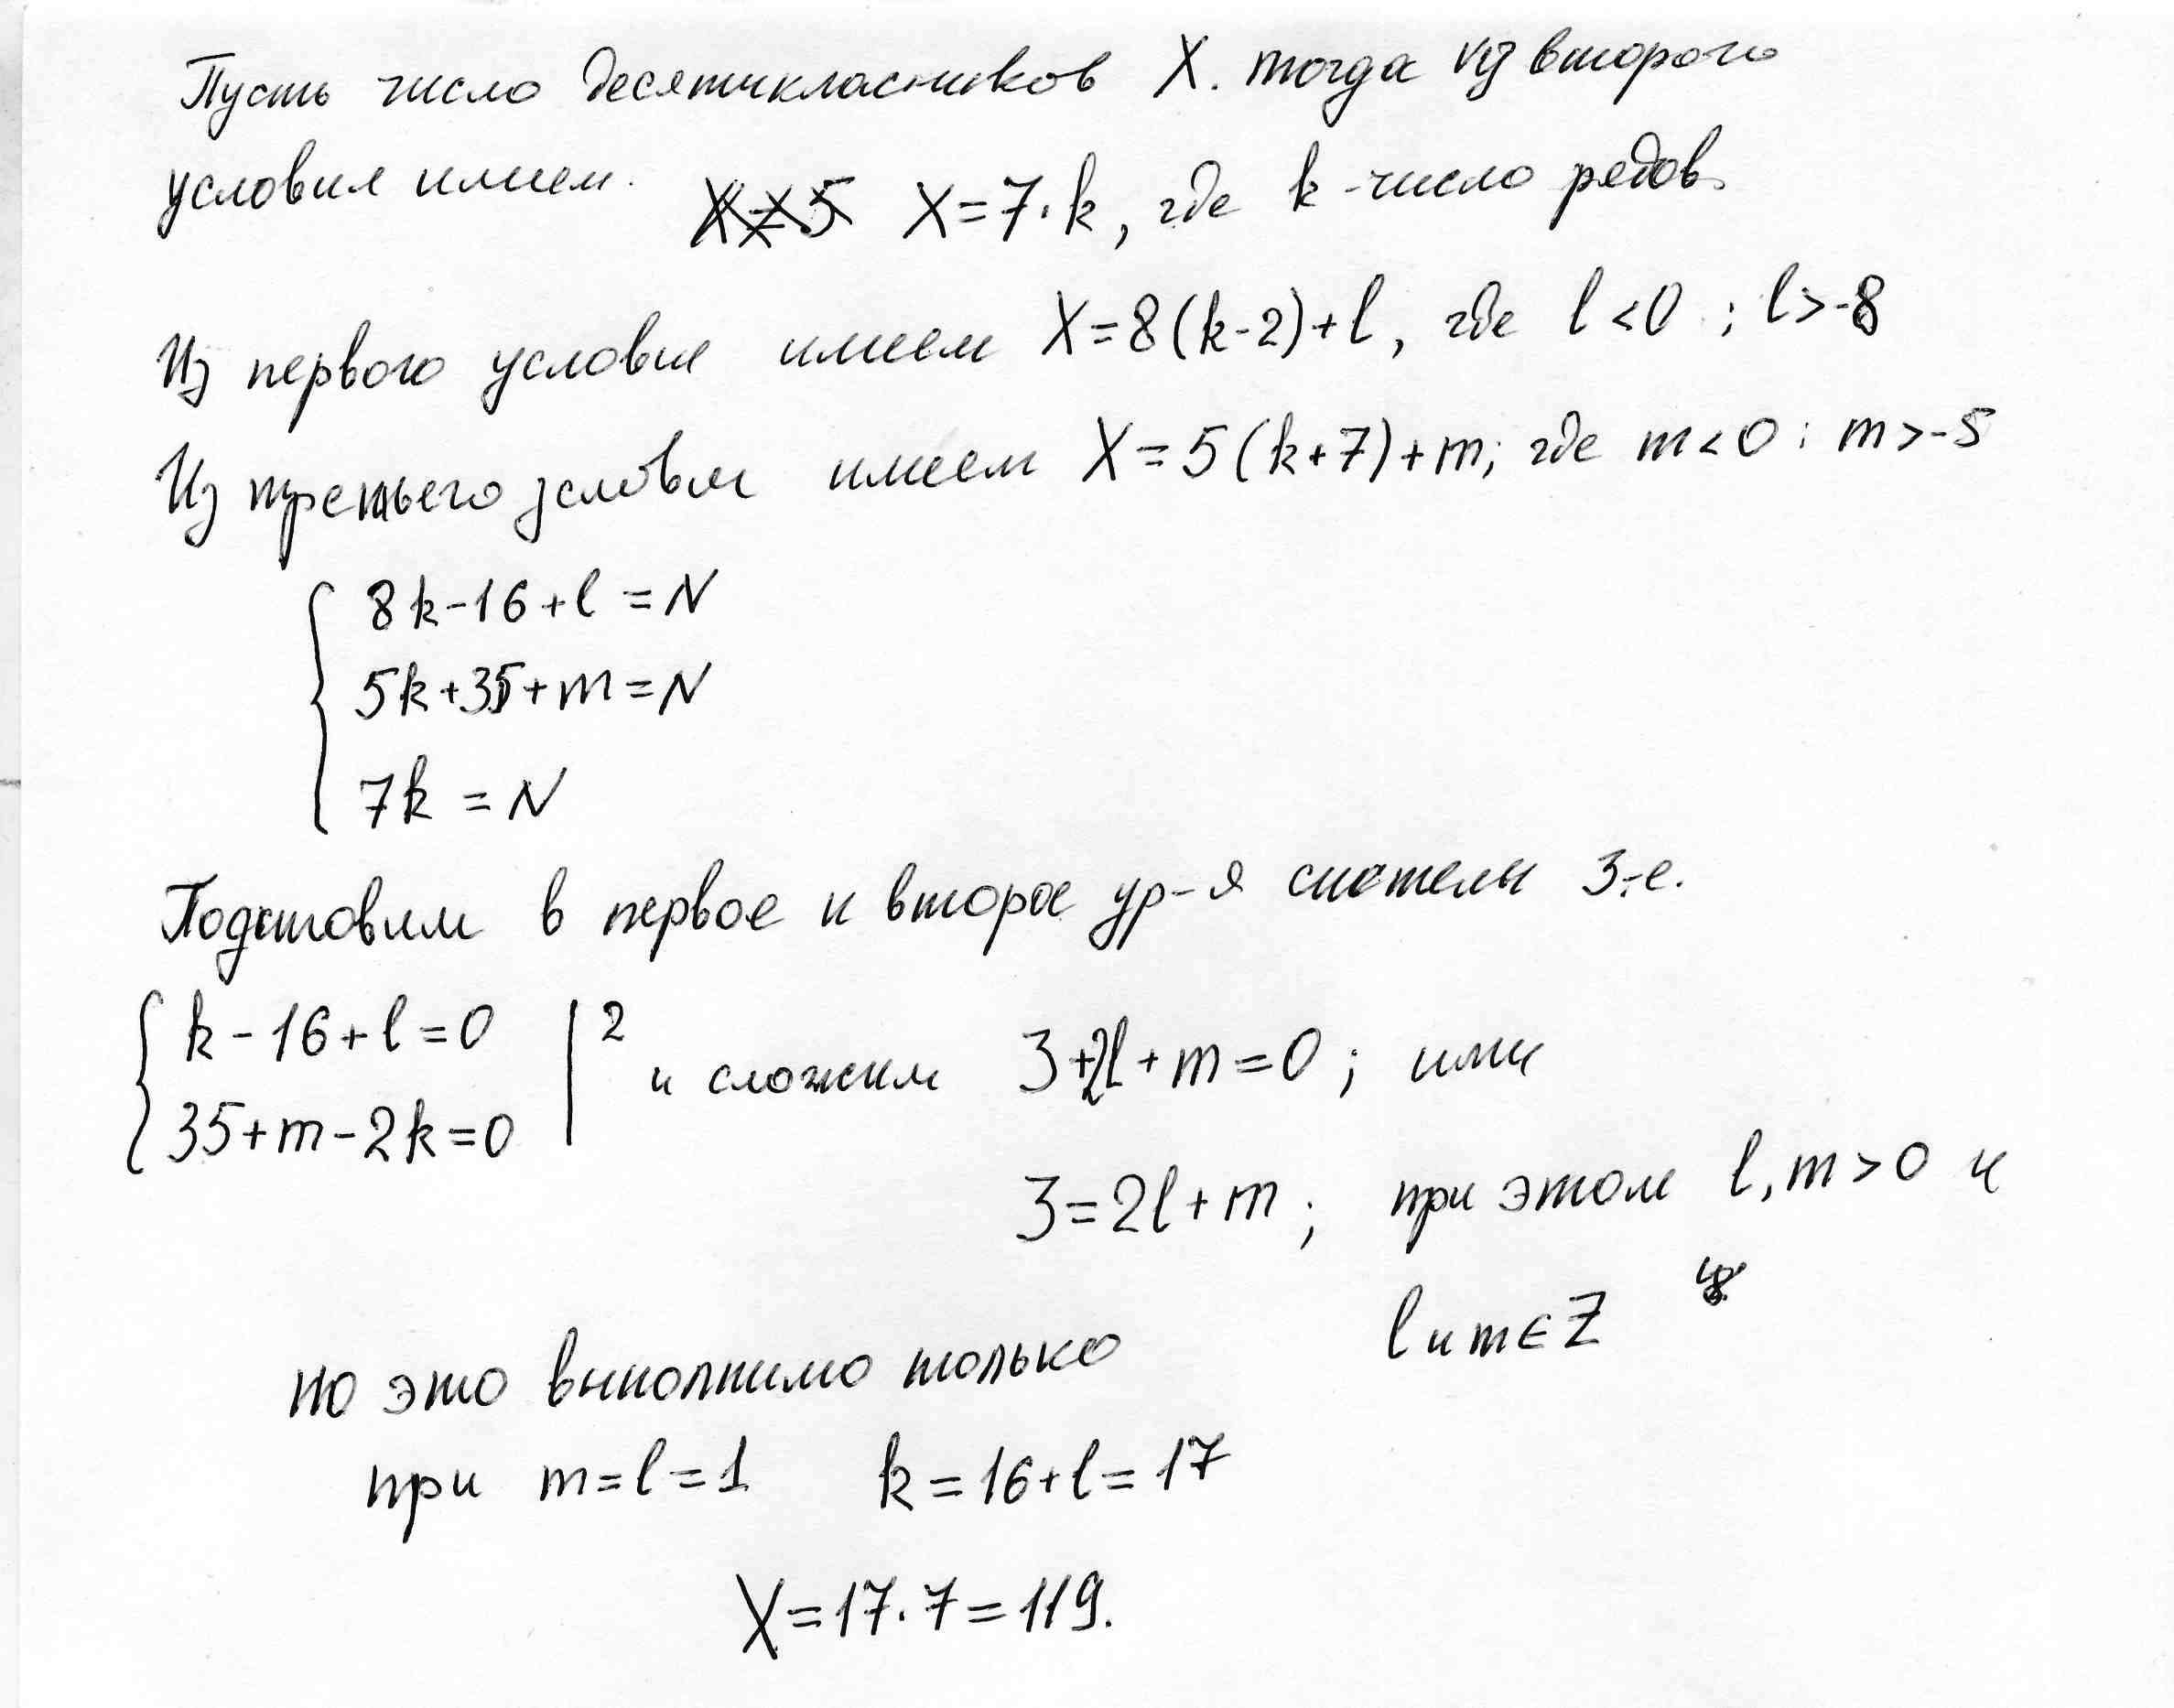 Пусть число десятикласников X. тогда из второго
условия имеем. X=7·k, где k - число рядов.
Из первого условия имеем X=8(k-2)+l, где l<0 ; l>-8
Из третьего условия имеем X=5(k+7)+m; где m<0 ; m>-5
8k-16+l=N
5k+35+m=N
7k=N
Подставим в первое и второе ур-я системы 3-е.
k-16+l=0 | 2
35+m-2k=0
и сложим 3+2l+m=0; или
3=2l+m; при этом l,m>0 и
l и m∈Z
но это выполнимо только
при m=l=1 k=16+l=17
X=17·7=119.